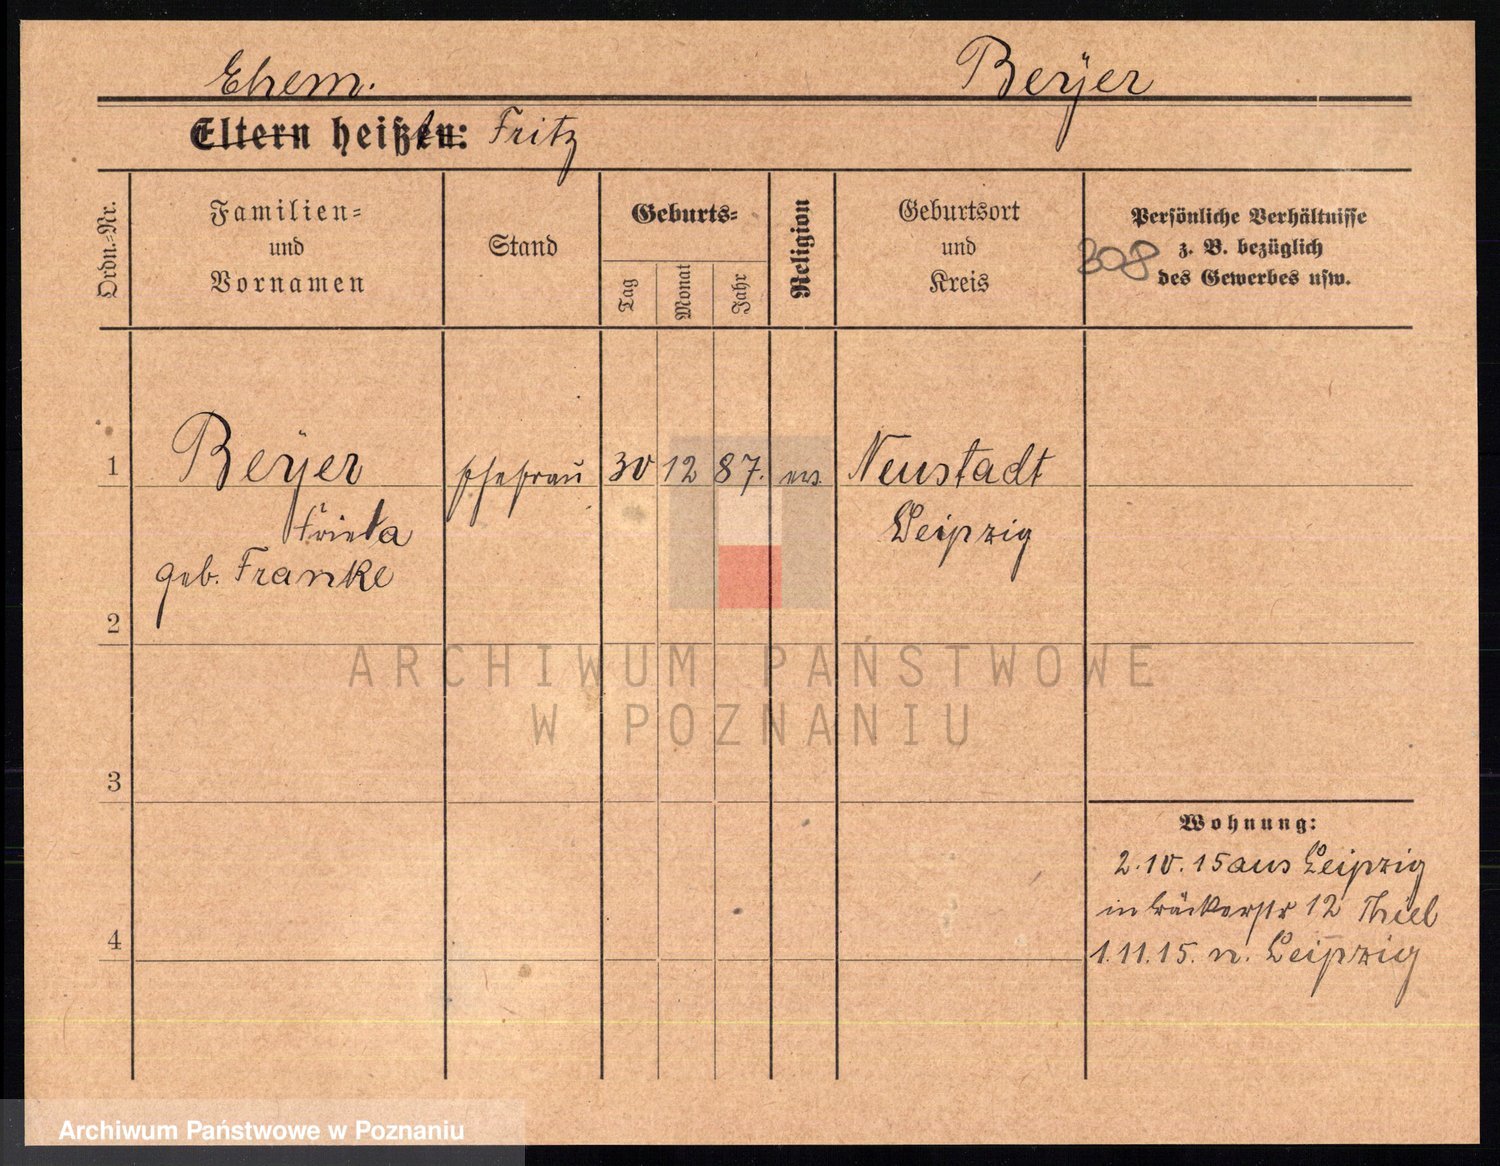 Ehem. Beyer
Eltern heißen: Fritz
Ordn.-Nr.
Familien-
und
Vornamen
Stand
Geburts-
Tag
Monat
Jahr
Religion
Geburtsort
und
Kreis
Persönliche Verhältnisse
z. B. bezüglich
des Gewerbes usw.
308
1 Beyer Ehefrau 30 12 87. ev. Neustadt
Frieda Leipzig
geb. Franke
2
3
4
Wohnung:
2.10.15 aus Leipzig
in Bäckerstr 12 Thiel
1.11.15. n. Leipzig
ARCHIWUM PAŃSTWOWE
W POZNANIU
Archiwum Państwowe w Poznaniu